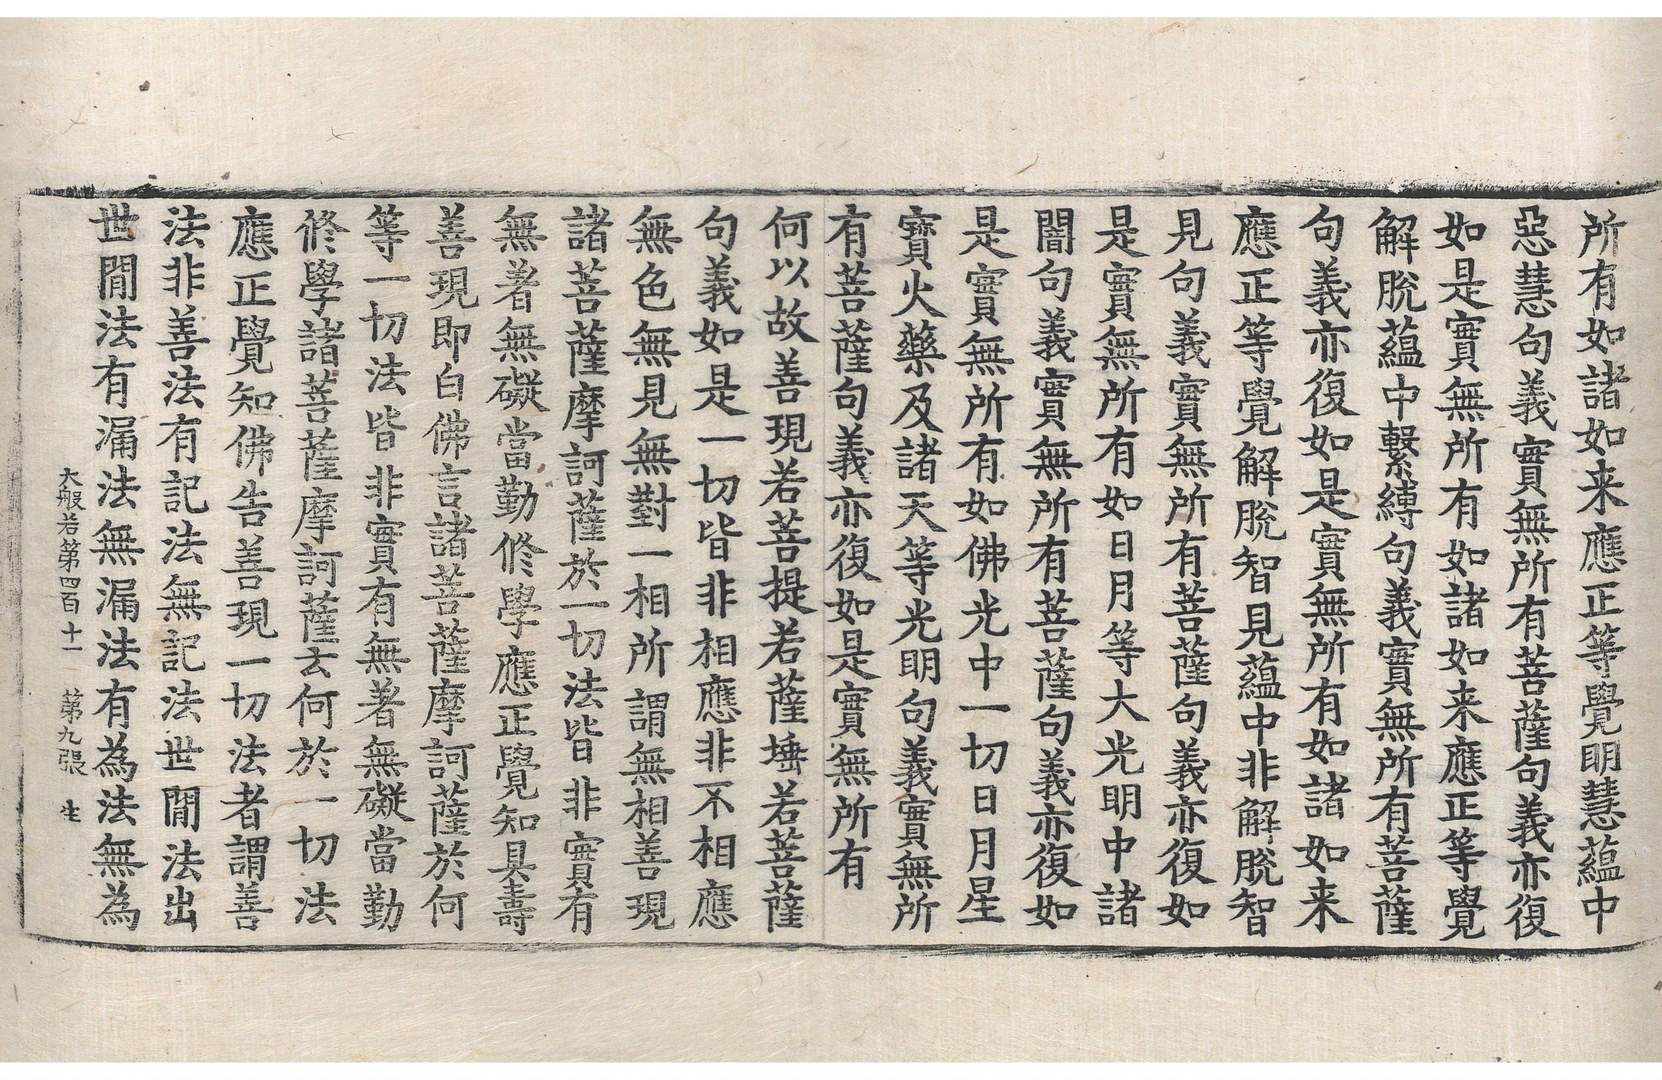 所有如諸如来應正等覺明慧蘊中
惡慧句義實無所有菩薩句義亦復
如是實無所有如諸如来應正等覺
解脫蘊中繫縛句義實無所有菩薩
句義亦復如是實無所有如諸如来
應正等覺解脫智見蘊中非解脫智
見句義實無所有菩薩句義亦復如
是實無所有如日月等大光明中諸
闇句義實無所有菩薩句義亦復如
是實無所有如佛光中一切日月星
寶火藥及諸天等光明句義實無所
有菩薩句義亦復如是實無所有
何以故善現若菩提若薩埵若菩薩
句義如是一切皆非相應非不相應
無色無見無對一相所謂無相善現
諸菩薩摩訶薩於一切法皆非實有
無著無礙當勤修學應正覺知具壽
善現即白佛言諸菩薩摩訶薩於何
等一切法皆非實有無著無礙當勤
修學諸菩薩摩訶薩云何於一切法
應正覺知佛告善現一切法者謂善
法非善法有記法無記法世閒法出
世閒法有漏法無漏法有為法無為
大般若第四百十一 第九張 生